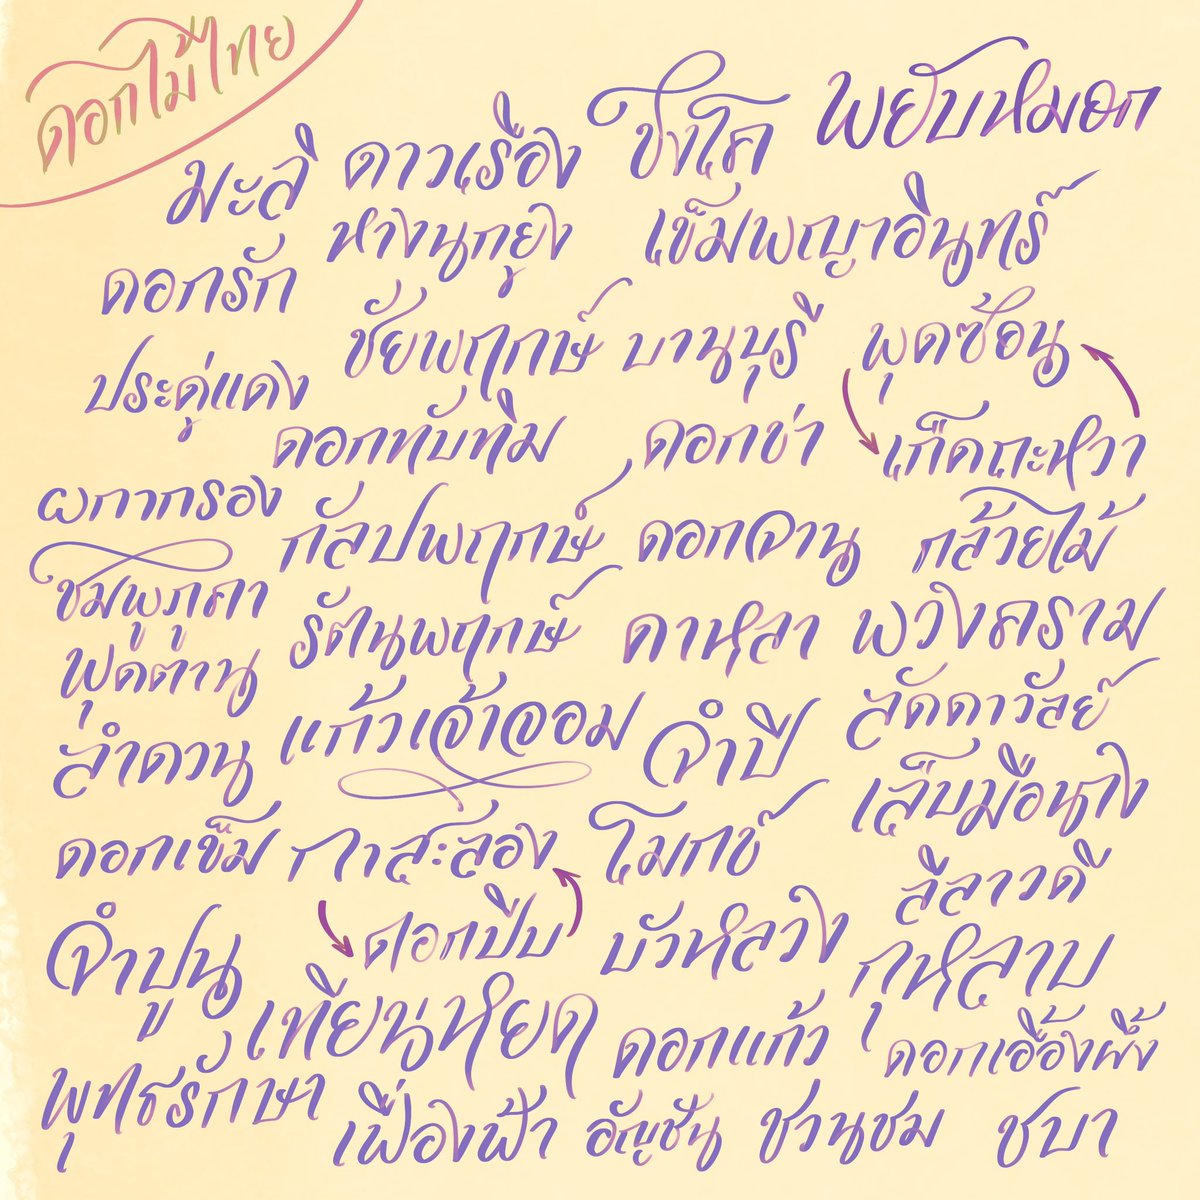 ดอกไม้ไทย
มะลิ ดาวเรือง ชงโค พยับหมอก
ดอกรัก หางนกยูง เข็มพญาอินทร์
ประดู่แดง ชัยพฤกษ์ บานบุรี พุดซ้อน
ดอกทับทิม ดอกข่า เก็ดถะหวา
ผกากรอง กัลปพฤกษ์ ดอกจาน กล้วยไม้
ชมพูภูคา รัตนพฤกษ์ ดาหลา พวงคราม
พุดต่าน แก้วเจ้าจอม จำปี ลัดดาวัลย์
ลำดวน เล็บมือนาง
ดอกเข็ม กาสะลอง โมกข์ ลีลาวดี
จำปูน ดอกปีบ บัวหลวง กุหลาบ
เทียนหยด ดอกแก้ว ดอกเอื้องผึ้ง
พุทธรักษา เฟื่องฟ้า อัญชัน ชวนชม ชบา